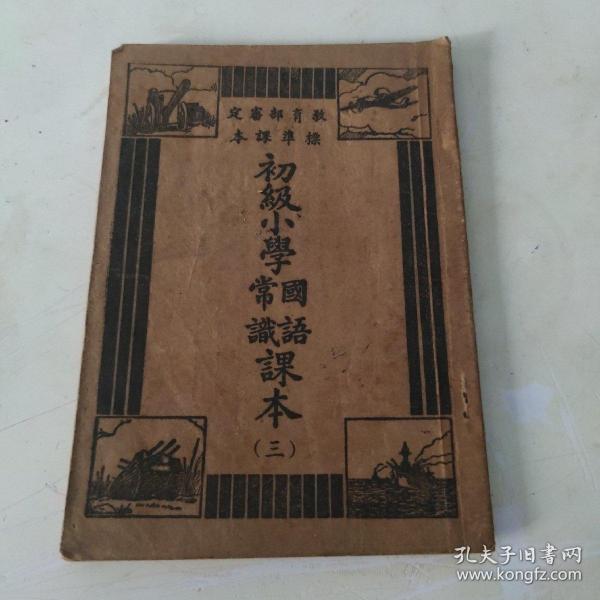 教育部審定
標準課本
初級小學國語常識課本
(三)
孔夫子旧书网
www.kongfz.com